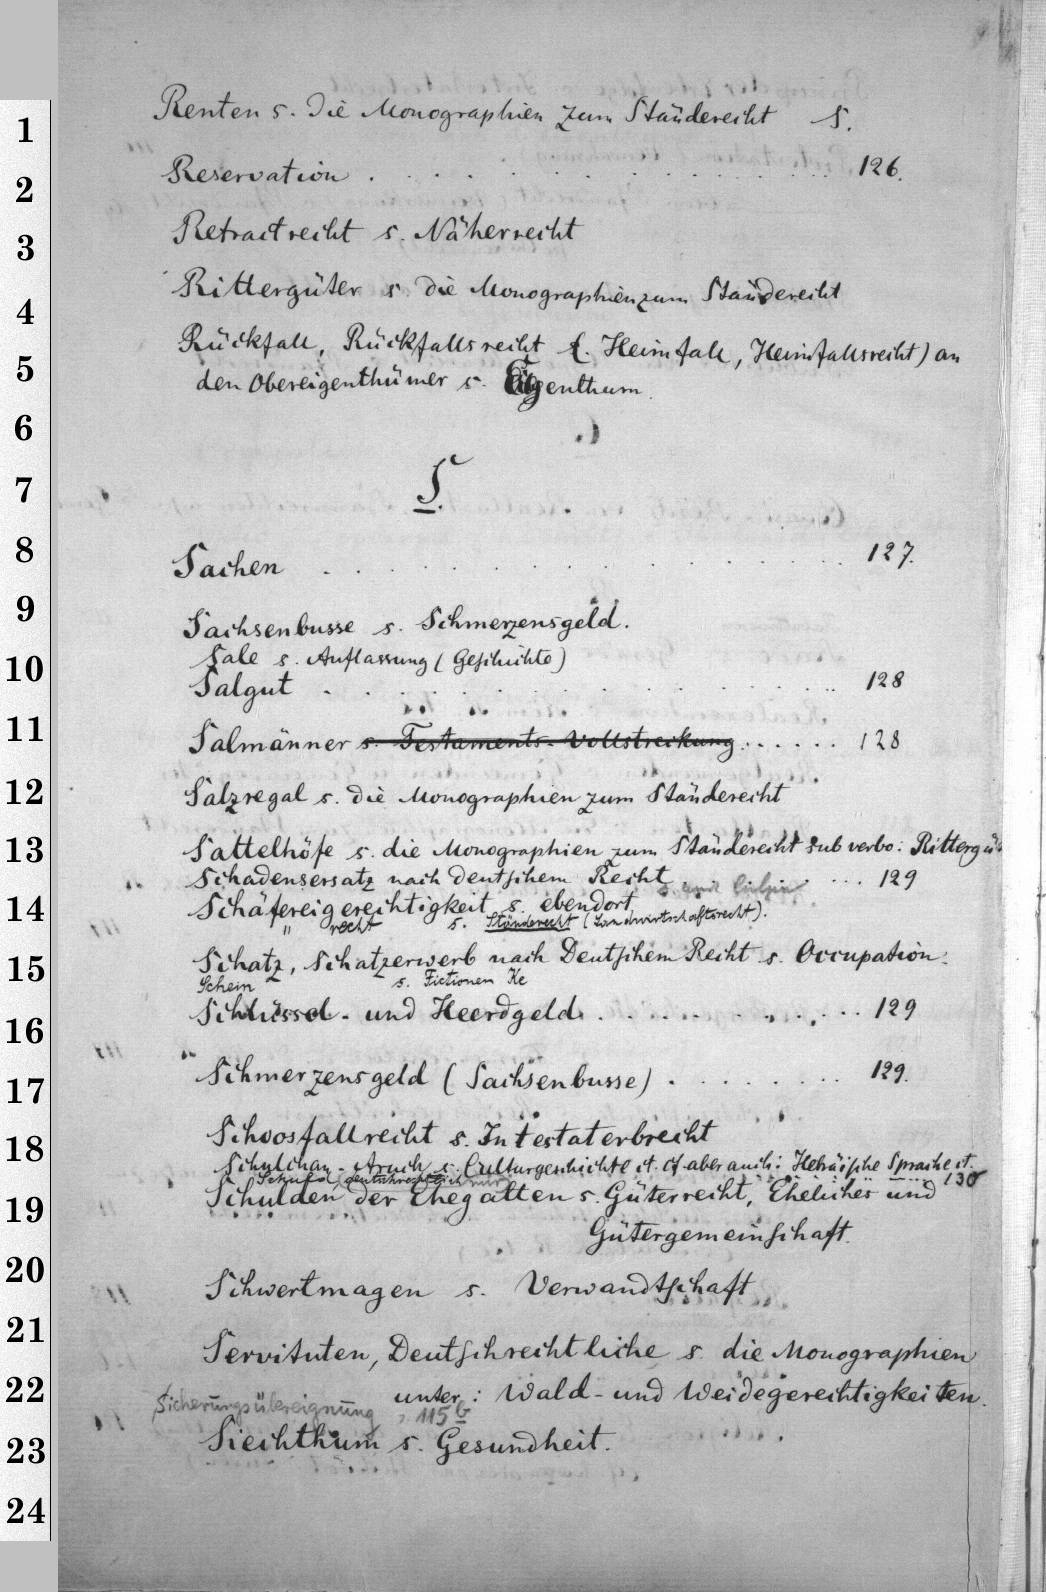 Renten s. die Monographien zum Ständerecht S.
Reservation . . . . . . . . . . . . 126.
Retractrecht s. Näherrecht
Rittergüter s die Monographien zum Ständerecht
Rückfall, Rückfallsrecht (. Heimfall, Heimfallsrecht) an
den Obereigenthümer s. Eigenthum.
S.
Sachen . . . . . . . . . . . . 127.
Sachsenbusse s. Schmerzensgeld.
Sale s. Auflassung (Geschichte)
Salgut . . . . . . . . . . . . 128
Salmänner s. Testaments-Vollstreckung . . . . . . 128
Salzregal s. die Monographien zum Ständerecht
Sattelhöfe s. die Monographien zum Ständerecht sub verbo: Rittergü
Schadensersatz nach deutschem Recht . . . . 129
Schäfereigerechtigkeit s. ebendort
" recht s. Ständerecht (Landwirtschaftsrecht).
Schatz, Schatzerwerb nach Deutschem Recht s. Occupation.
Schein s. Fictionen Ke
Schlüssel- und Heerdgeld . . . . . . . . 129
Schmerzensgeld (Sachsenbusse) . . . . . . . . 129.
Schoosfallrecht s. Intestaterbrecht
Schulchan-Aruch s. Culturgeschichte it. cf aber auch: Hebräische Sprache it.
Schuld, deutschrechtlich nur 130
Schulden der Ehegatten s. Güterrecht, Eheliches und
Gütergemeinschaft.
Schwertmagen s. Verwandtschaft
Servituten, Deutschrechtliche s. die Monographien
unter: Wald- und Weidegerechtigkeiten.
Sicherungsübereignung 115 b
Siechthum s. Gesundheit.
1
2
3
4
5
6
7
8
9
10
11
12
13
14
15
16
17
18
19
20
21
22
23
24